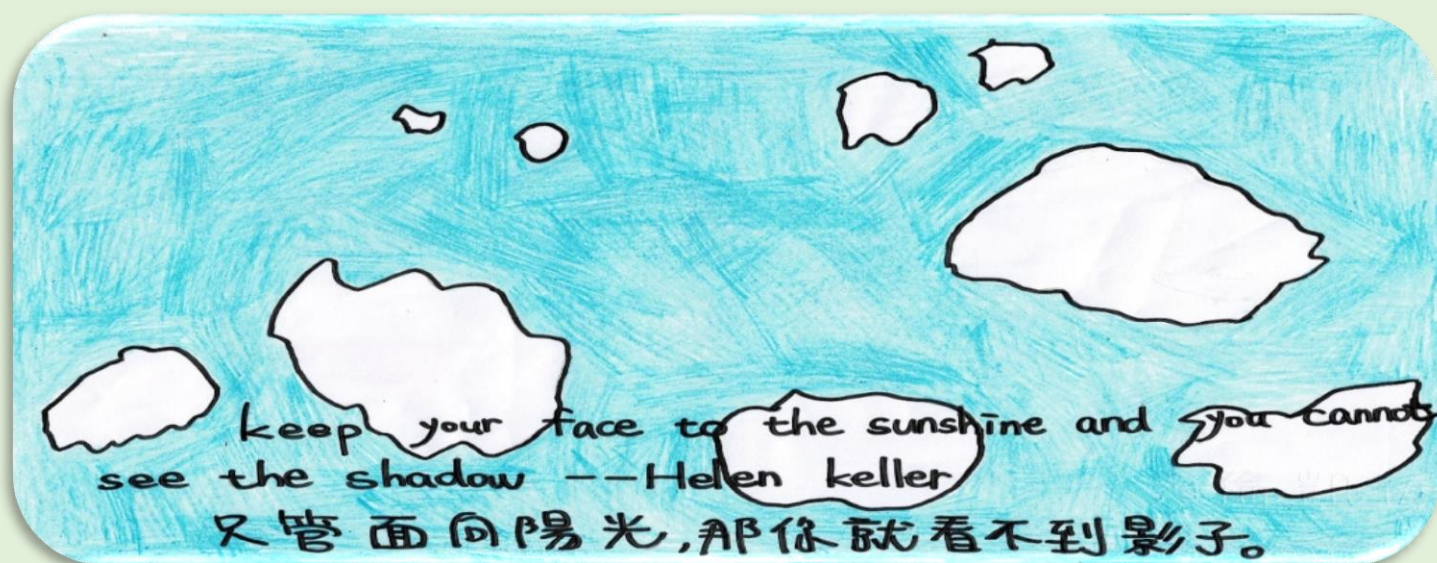 keep your face to the sunshine and you cannot
see the shadow --Helen keller
只管面向陽光,那你就看不到影子。